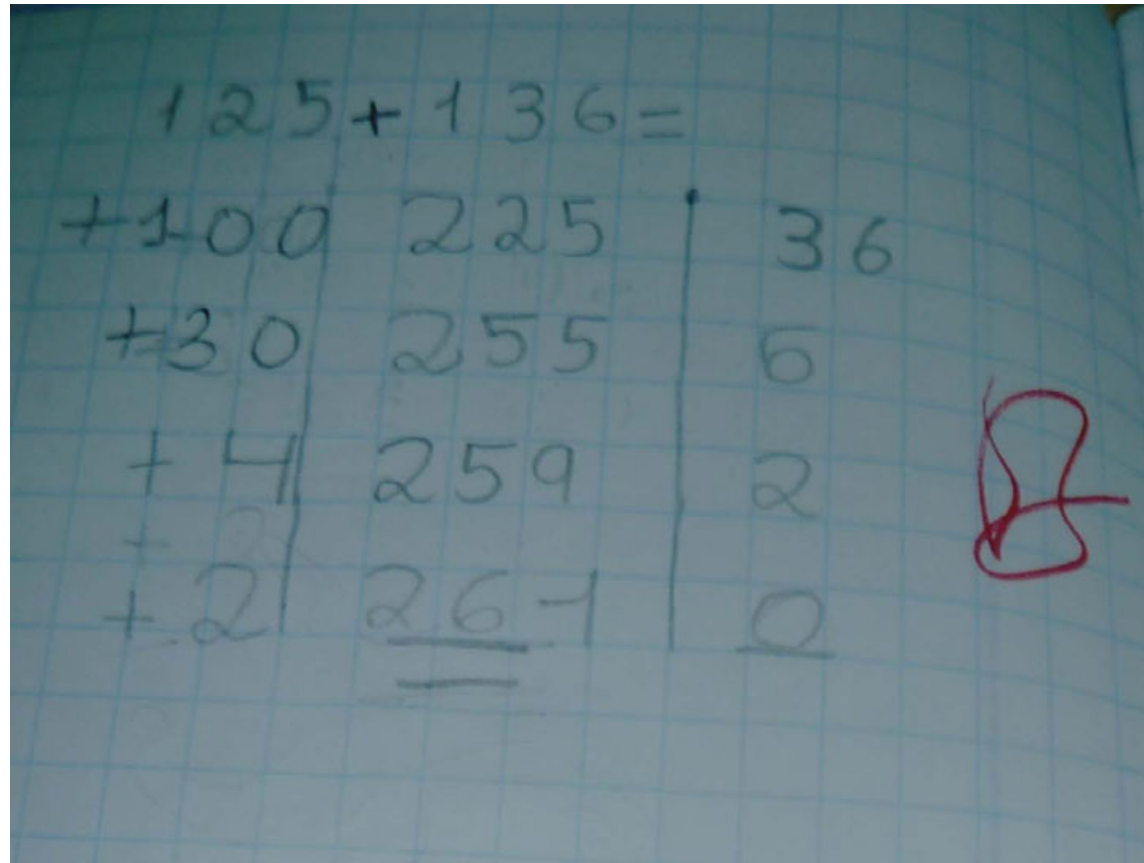 125+136=
+100 225 36
+30 255 6
+4 259 2
+2 261 0